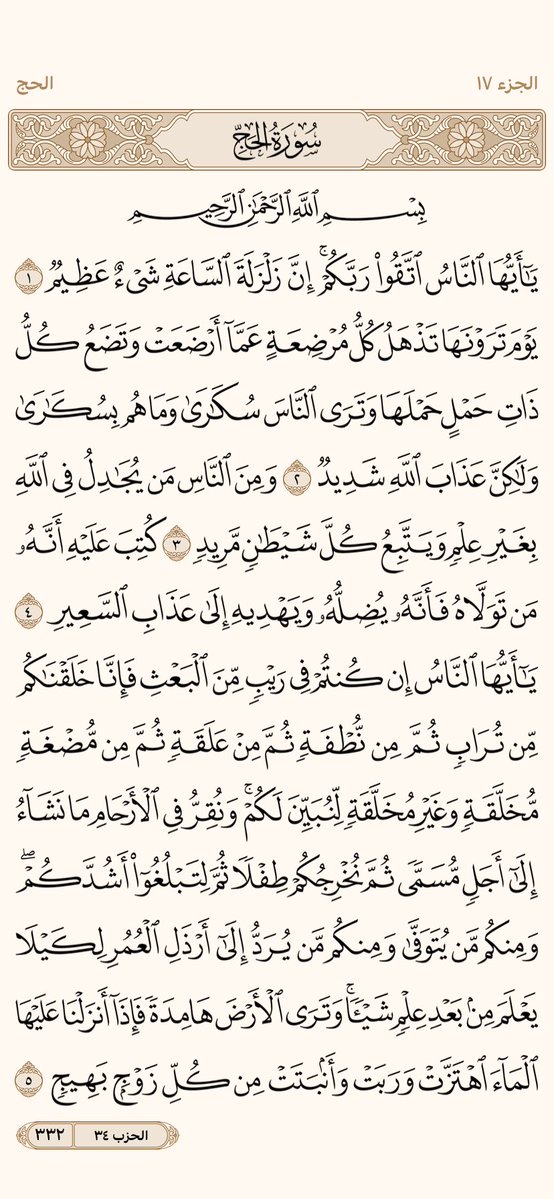 الجزء ١٧ الحج
سُورَةُ الحَجِّ
بِسْمِ ٱللَّهِ ٱلرَّحْمَٰنِ ٱلرَّحِيمِ
يَٰٓأَيُّهَا ٱلنَّاسُ ٱتَّقُوا۟ رَبَّكُمْ ۚ إِنَّ زَلْزَلَةَ ٱلسَّاعَةِ شَىْءٌ عَظِيمٌ ١
يَوْمَ تَرَوْنَهَا تَذْهَلُ كُلُّ مُرْضِعَةٍ عَمَّآ أَرْضَعَتْ وَتَضَعُ كُلُّ
ذَاتِ حَمْلٍ حَمْلَهَا وَتَرَى ٱلنَّاسَ سُكَٰرَىٰ وَمَا هُم بِسُكَٰرَىٰ
وَلَٰكِنَّ عَذَابَ ٱللَّهِ شَدِيدٌ ٢ وَمِنَ ٱلنَّاسِ مَن يُجَٰدِلُ فِى ٱللَّهِ
بِغَيْرِ عِلْمٍ وَيَتَّبِعُ كُلَّ شَيْطَٰنٍ مَّرِيدٍ ٣ كُتِبَ عَلَيْهِ أَنَّهُۥ
مَن تَوَلَّاهُ فَأَنَّهُۥ يُضِلُّهُۥ وَيَهْدِيهِ إِلَىٰ عَذَابِ ٱلسَّعِيرِ ٤
يَٰٓأَيُّهَا ٱلنَّاسُ إِن كُنتُمْ فِى رَيْبٍ مِّنَ ٱلْبَعْثِ فَإِنَّا خَلَقْنَٰكُم
مِّن تُرَابٍ ثُمَّ مِن نُّطْفَةٍ ثُمَّ مِنْ عَلَقَةٍ ثُمَّ مِن مُّضْغَةٍ
مُّخَلَّقَةٍ وَغَيْرِ مُخَلَّقَةٍ لِّنُبَيِّنَ لَكُمْ ۚ وَنُقِرُّ فِى ٱلْأَرْحَامِ مَا نَشَآءُ
إِلَىٰٓ أَجَلٍ مُّسَمًّى ثُمَّ نُخْرِجُكُمْ طِفْلًا ثُمَّ لِتَبْلُغُوٓا۟ أَشُدَّكُمْ ۖ
وَمِنكُم مَّن يُتَوَفَّىٰ وَمِنكُم مَّن يُرَدُّ إِلَىٰٓ أَرْذَلِ ٱلْعُمُرِ لِكَيْلَا
يَعْلَمَ مِنۢ بَعْدِ عِلْمٍ شَيْـًٔا ۚ وَتَرَى ٱلْأَرْضَ هَامِدَةً فَإِذَآ أَنزَلْنَا عَلَيْهَا
ٱلْمَآءَ ٱهْتَزَّتْ وَرَبَتْ وَأَنۢبَتَتْ مِن كُلِّ زَوْجٍۭ بَهِيجٍ ٥
الحزب ٣٤ ٣٣٢